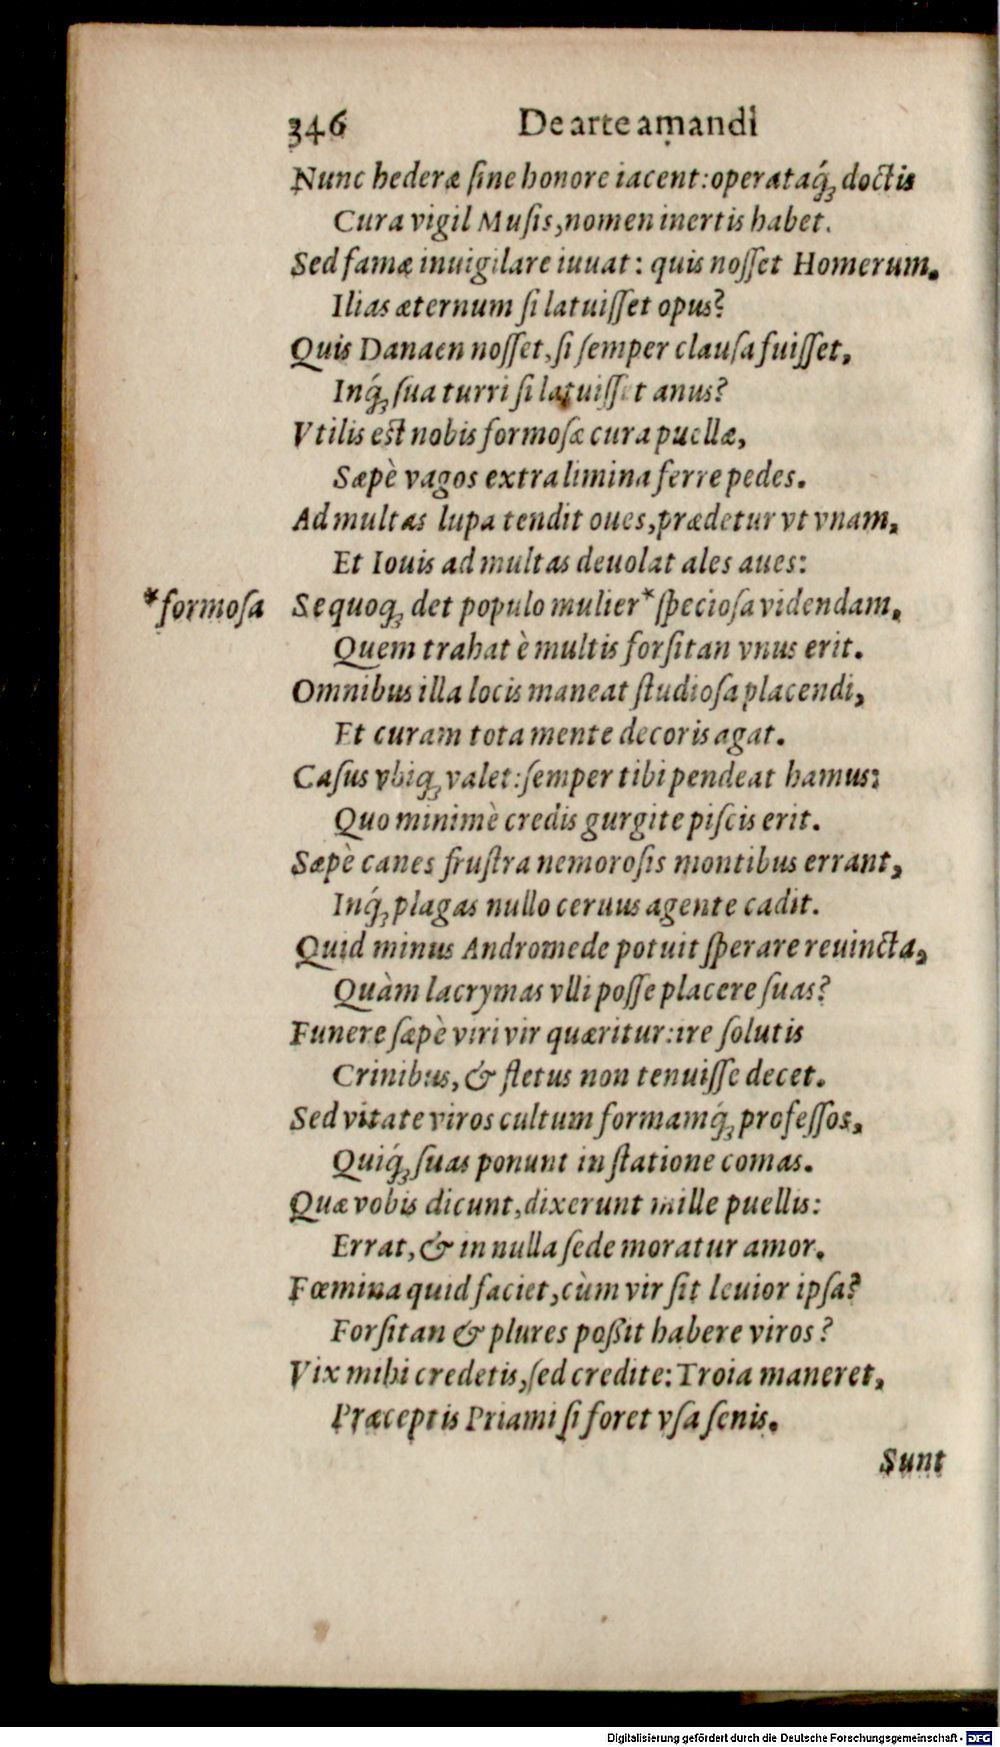 346 De arte amandi
Nunc hederæ ſine honore iacent: operataq́ꝫ doctis
Cura vigil Muſis, nomen inertis habet.
Sed famæ inuigilare iuuat: quis noſſet Homerum,
Ilias æternum ſi latuiſſet opus?
Quis Danaen noſſet, ſi ſemper clauſa fuiſſet,
Inq́ꝫ ſua turri ſi latuiſſet anus?
Vtilis est nobis formoſæ cura puellæ,
Sæpè vagos extra limina ferre pedes.
Ad multas lupa tendit oues, prædetur vt vnam,
Et Iouis ad multas deuolat ales aues:
*formoſa Se quoqꝫ det populo mulier* ſpecioſa videndam,
Quem trahat è multis forſitan vnus erit.
Omnibus illa locis maneat ſtudioſa placendi,
Et curam tota mente decoris agat.
Caſus vbiqꝫ valet: ſemper tibi pendeat hamus:
Quo minimè credis gurgite piſcis erit.
Sæpè canes fruſtra nemoroſis montibus errant,
Inq́ꝫ plagas nullo ceruus agente cadit.
Quid minus Andromede potuit ſperare reuincta,
Quàm lacrymas vlli poſſe placere ſuas?
Funere ſæpè viri vir quæritur: ire ſolutis
Crinibus, & fletus non tenuiſſe decet.
Sed vitate viros cultum formamq́ꝫ profeſſos,
Quiq́ꝫ ſuas ponunt in ſtatione comas.
Quæ vobis dicunt, dixerunt mille puellis:
Errat, & in nulla ſede moratur amor.
Fœmina quid faciet, cùm vir ſit leuior ipſa?
Forſitan & plures poßit habere viros?
Vix mihi credetis, ſed credite: Troia maneret,
Præceptis Priami ſi foret vſa ſenis.
Sunt
Digitalisierung gefördert durch die Deutsche Forschungsgemeinschaft - DFG